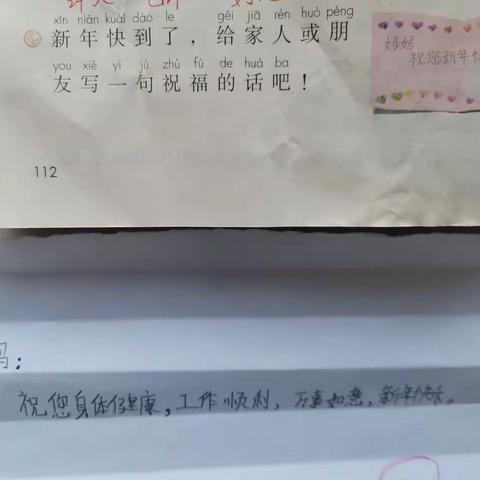 xīn nián kuài dào le gěi jiā rén huò péng
新年快到了，给家人或朋
you xiě yí jù zhù fú de huà ba
友写一句祝福的话吧！
妈妈
祝您新年快
112
妈：
祝您身体健康，工作顺利，万事如意，新年快乐。